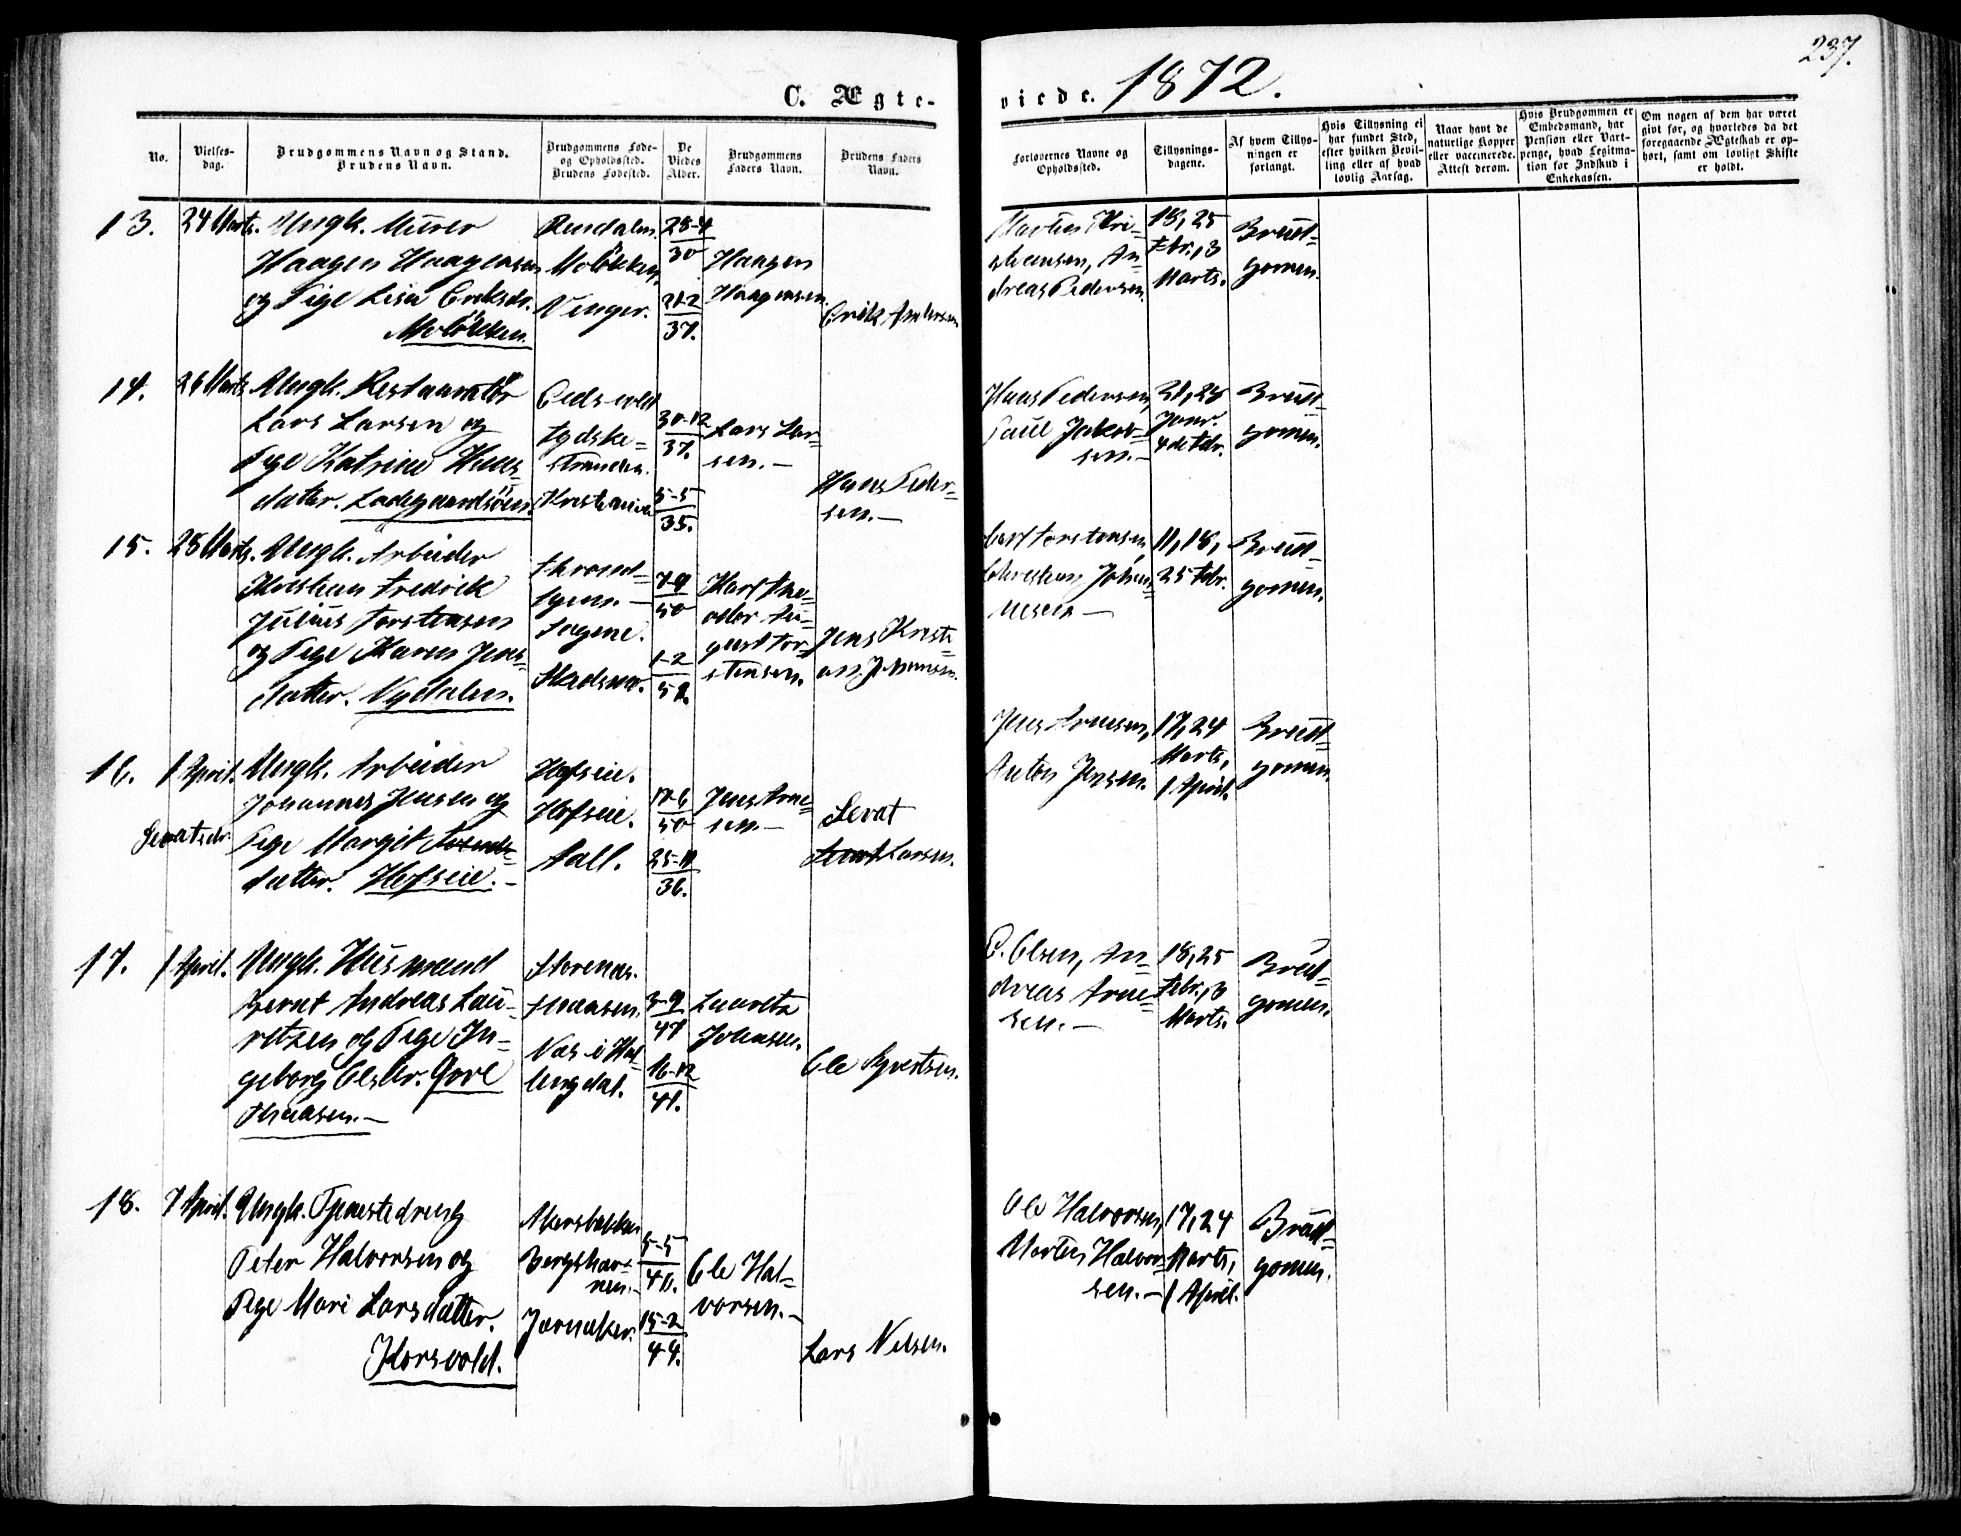 237.
C. Ægte-
viede. 1872.
No.
Vielses-
dag.
Brudgommens Navn og Stand.
Brudens Navn.
Brudgommens Føde-
og Opholdssted.
Brudens Fødested.
De
Viedes
Alder.
Brudgommens
Faders Navn.
Brudens Faders
Navn.
Forlovernes Navne og
Opholdssted.
Tillysnings-
dagene.
Af hvem Tillys-
ningen er
forlangt.
Hvis Tillysning ei
har fundet Sted,
efter hvilken Bevil-
ling eller af hvad
lovlig Aarsag.
Naar havt de
naturlige Kopper
eller vaccinerede.
Attest derom.
Hvis Brudgommen er
Embedsmand, har
Pension eller Vart-
penge, hvad Legitma-
tion for Indskud i
Enkekassen.
Om nogen af dem har været
gift før, og hvorledes da det
foregaaende Ægteskab er op-
hørt, samt om lovligt Skifte
er holdt.
13.
24 Marts.
Ungk. Murer
Haagen Haagensen
og Pige Lisa Eriksdr.
Moløkken.
Rendalen.
Moløkken.
Vinger.
28-4
30
21-2
37.
Haagen
Haagensen.
Erik Andersen
Martin Kri-
stiansen, An-
dreas Pedersen.
18, 25
Febr., 3
Marts.
Brud-
gomen.
14.
26 Marts.
Ungk. Restauratør
Lars Larsen og
Pige Katrine Hans-
datter. Ladegaardsøen.
Eidsvold
Tydske-
stranden.
Kristiania
30-12
37.
5-5
35.
Lars Lar-
sen.-
Hans Peder-
sen.-
Hans Pedersen,
Paul Jakob-
sen.-
21, 28
Janr.
4de Febr.
Brud-
gomen.
15.
28 Marts.
Ungk. Arbeider
Kristian Fredrik
Julius Torstensen
og Pige Karen Jens-
datter. Nydalen.
Thrond-
hjem.-
Sagene.
Skedsmo.
7-9
50
1-2
52.
Karl The-
odor Au-
gust Tor-
stensen.
Jens Kristi-
an Johannesen.
Carl Torstensen,
Christian Johan-
nesen-
11, 18,
25 Febr.
Brud-
gomen.
16.
1 April.
Ungk. Arbeider
Johannes Jensen og
Sevatsdr.
Pige Margit
datter. Hofseie.-
Hofseie.
Hofseie.
Aall.
10-6
50
25-11
36.
Jens Arne-
sen.-
Sevat
Larsen.
Jens Arnesen,
Anton Jensen.
17, 24
Marts,
1 April.
Brud-
gomen.
17.
1 April.
Ungk. Husmand
Bernt Andreas Lau-
ritzen og Pige In-
geborg Olsdr. Øvre
Thaasen.-
Storenes.
Thaasen.
Næs i Hal-
lingdal.
3-9
47
16-12
41.
Lauritz
Johnsen.
Ole Syvertsen.
O. Olsen, An-
dreas Arne-
sen.-
18, 25
Febr., 3
Marts.
Brud-
gomen.
18.
7 April.
Ungk. Tjenestedreng
Peter Halvorsen og
Pige Mari Larsdatter.
Korsvold.
Akersbakken
Bergshav-
nen.-
Jevnaker.
5-5
41.
15-2
44.
Ole Hal-
vorsen.-
Lars Nilsen.
Ole Halvorsen,
Morten Halvor-
sen.-
17, 24
Marts,
1 April.
Brud-
gomen.